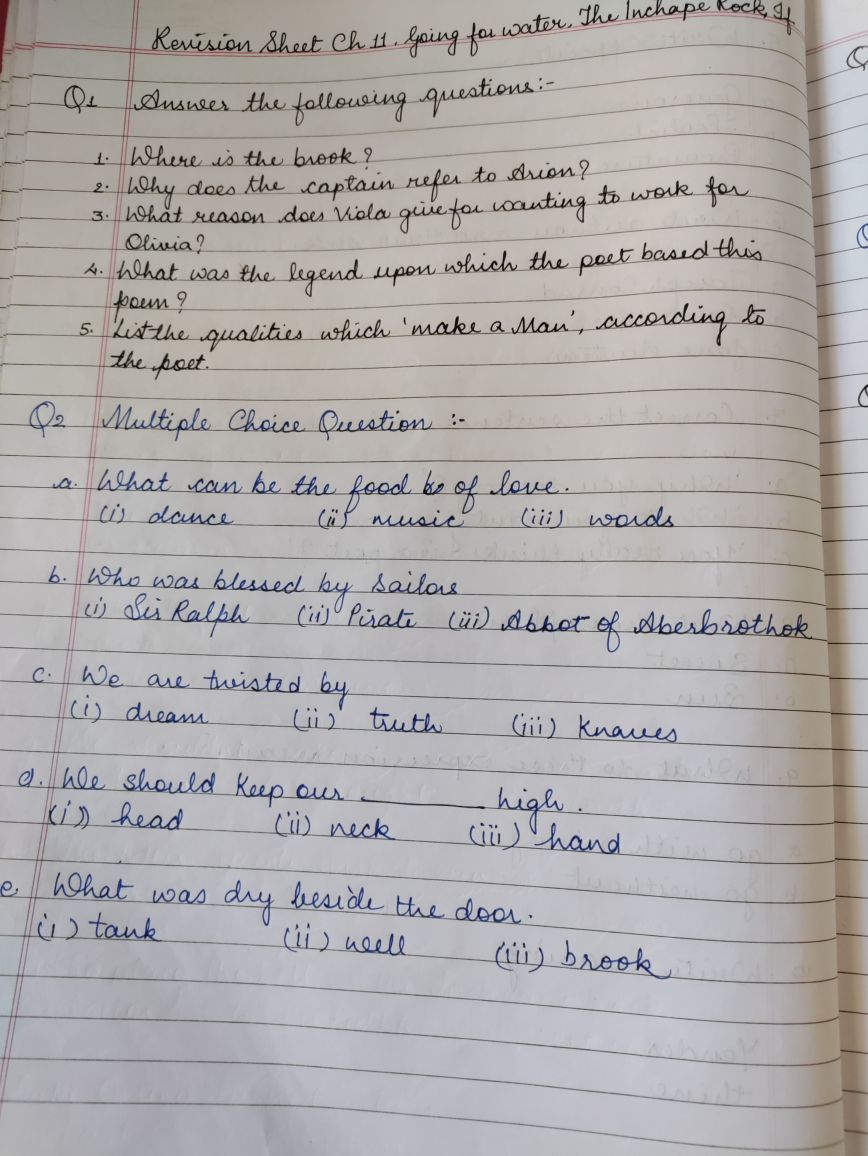 Revision Sheet Ch 11, Going for water, The Inchape Rock, If
Q1 Answer the following questions:-
1. Where is the brook?
2. Why does the captain refer to Arion?
3. What reason does Viola give for wanting to work for
Olivia?
4. What was the legend upon which the poet based this
poem?
5. List the qualities which 'make a Man', according to
the poet.
Q2 Multiple Choice Question :-
a. What can be the food of love.
(i) dance (ii) music (iii) words
b. Who was blessed by sailors
(i) Sir Ralph (ii) Pirate (iii) Abbot of Aberbrothok
c. We are twisted by
(i) dream (ii) truth (iii) Knaves
d. We should keep our ______ high.
(i) head (ii) neck (iii) hand
e. What was dry beside the door.
(i) tank (ii) well (iii) brook